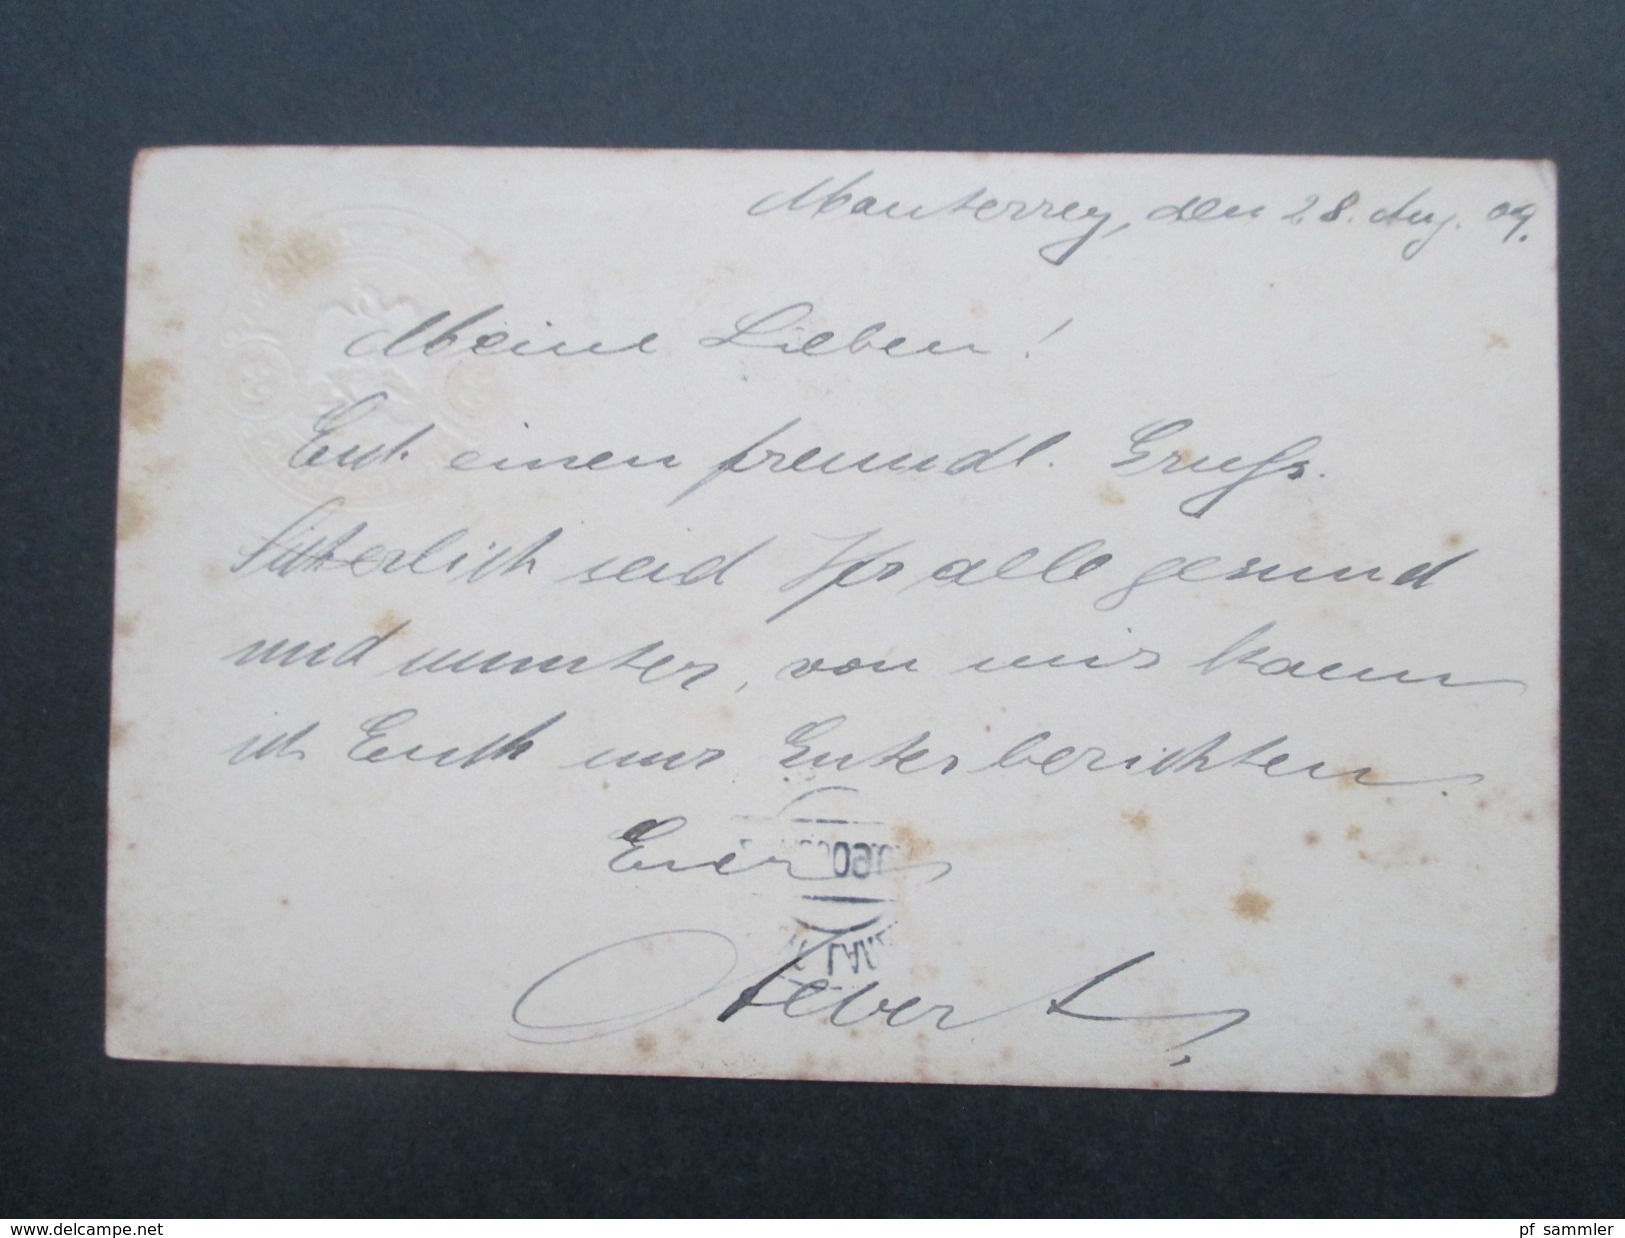 Monterrey, den 28. Aug. 09.
Meine Lieben!
Euch einen freundl. Gruss.
seid Ihr alle gesund
und munter, von mir kann
ich Euch nur Gutes berichten.
Euer
Albert
www.delcampe.net
pf sammler